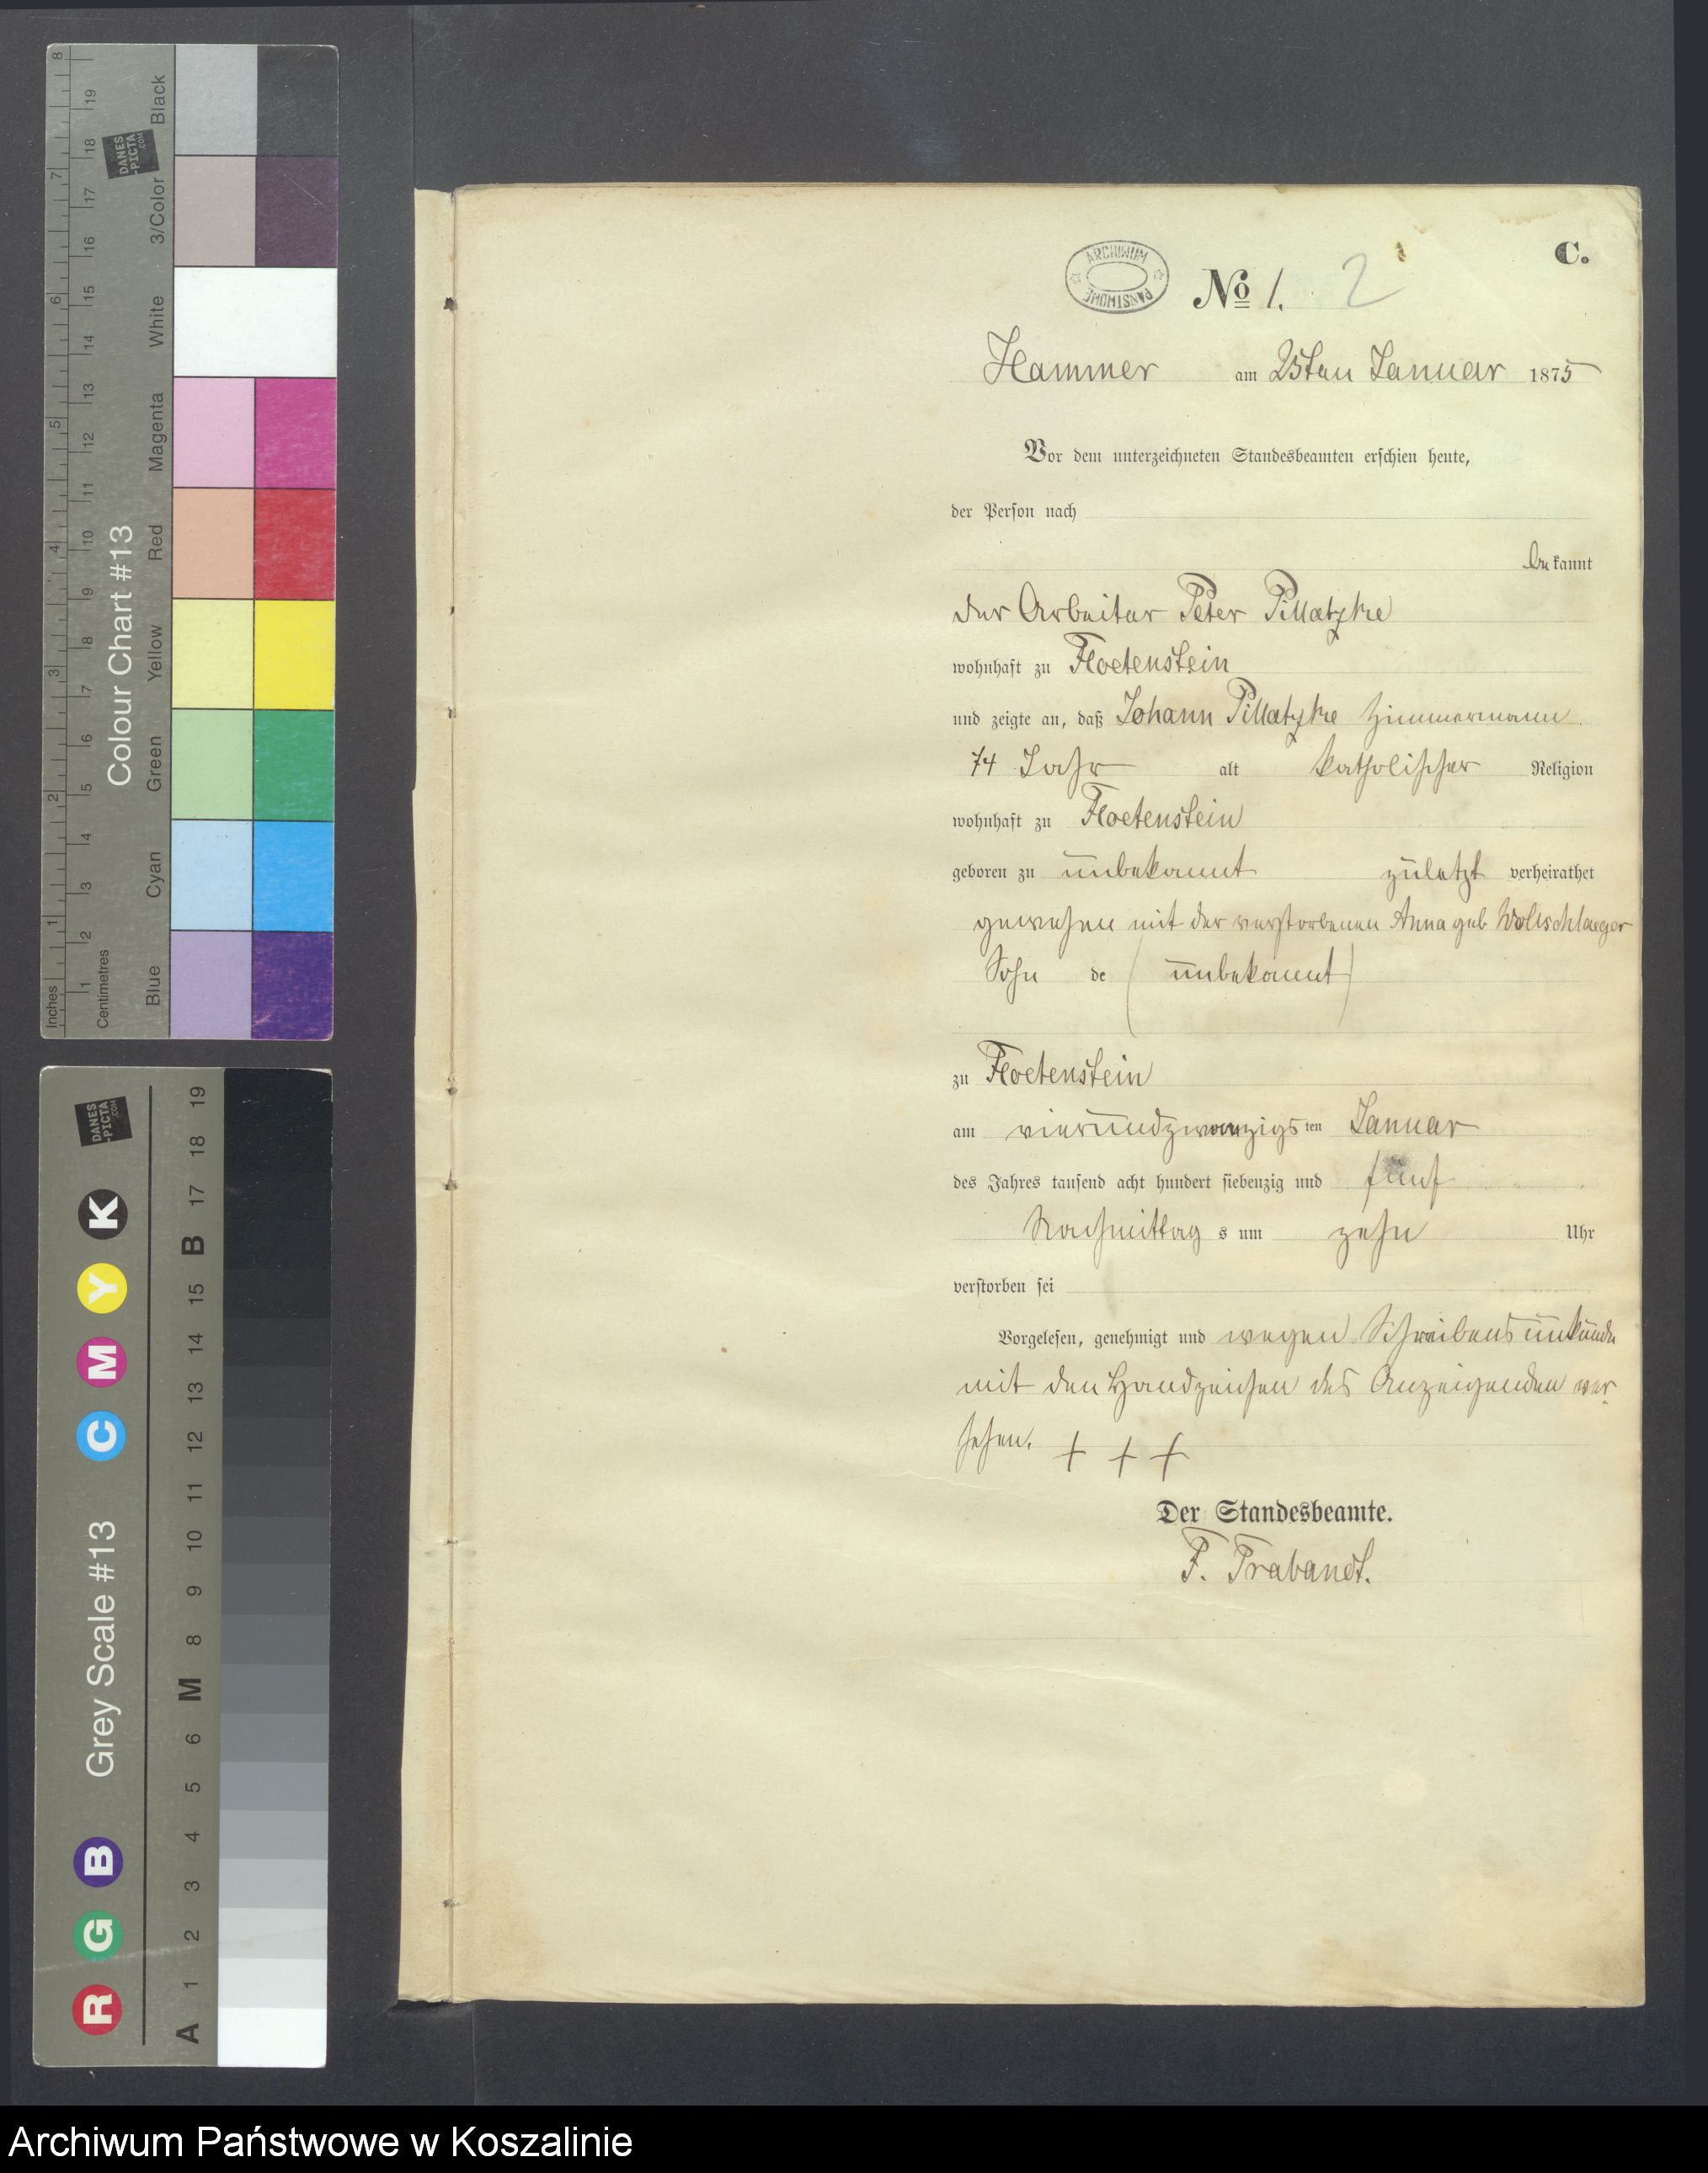 C.
ARCHIWUM PAŃSTWOWE
No 1. 2
Hammer am 25ten Januar 1875
Vor dem unterzeichneten Standesbeamten erschien heute,
der Person nach
bekannt
der Arbeiter Peter Pillatzke
wohnhaft zu Floetenstein
und zeigte an, daß Johann Pillatzke Zimmermann
74 Jahr alt katholischer Religion
wohnhaft zu Floetenstein
geboren zu unbekannt zuletzt verheirathet
gewesen mit der verstorbenen Anna geb Wollschlaeger
Sohn de (unbekannt)
zu Floetenstein
am vierundzwanzigs ten Januar
des Jahres tausend acht hundert siebenzig und fünf
Nachmittag s um zehn Uhr
verstorben sei
Vorgelesen, genehmigt und wegen Schreibensunkunde
mit den Handzeichen des Anzeigenden ver
sehen. + + +
Der Standesbeamte.
F. Trabandt.
Inches
Centimetres
Colour Chart #13
Blue
Cyan
Green
Yellow
Red
Magenta
White
3/Color
Black
DANES-PICTA.COM
1 2 3 4 5 6 7 8
1 2 3 4 5 6 7 8 9 10 11 12 13 14 15 16 17 18 19
Grey Scale #13
R G B C M Y K
A 1 2 3 4 5 6 M 8 9 10 11 12 13 14 15 B 17 18 19
DANES-PICTA.COM
Archiwum Państwowe w Koszalinie